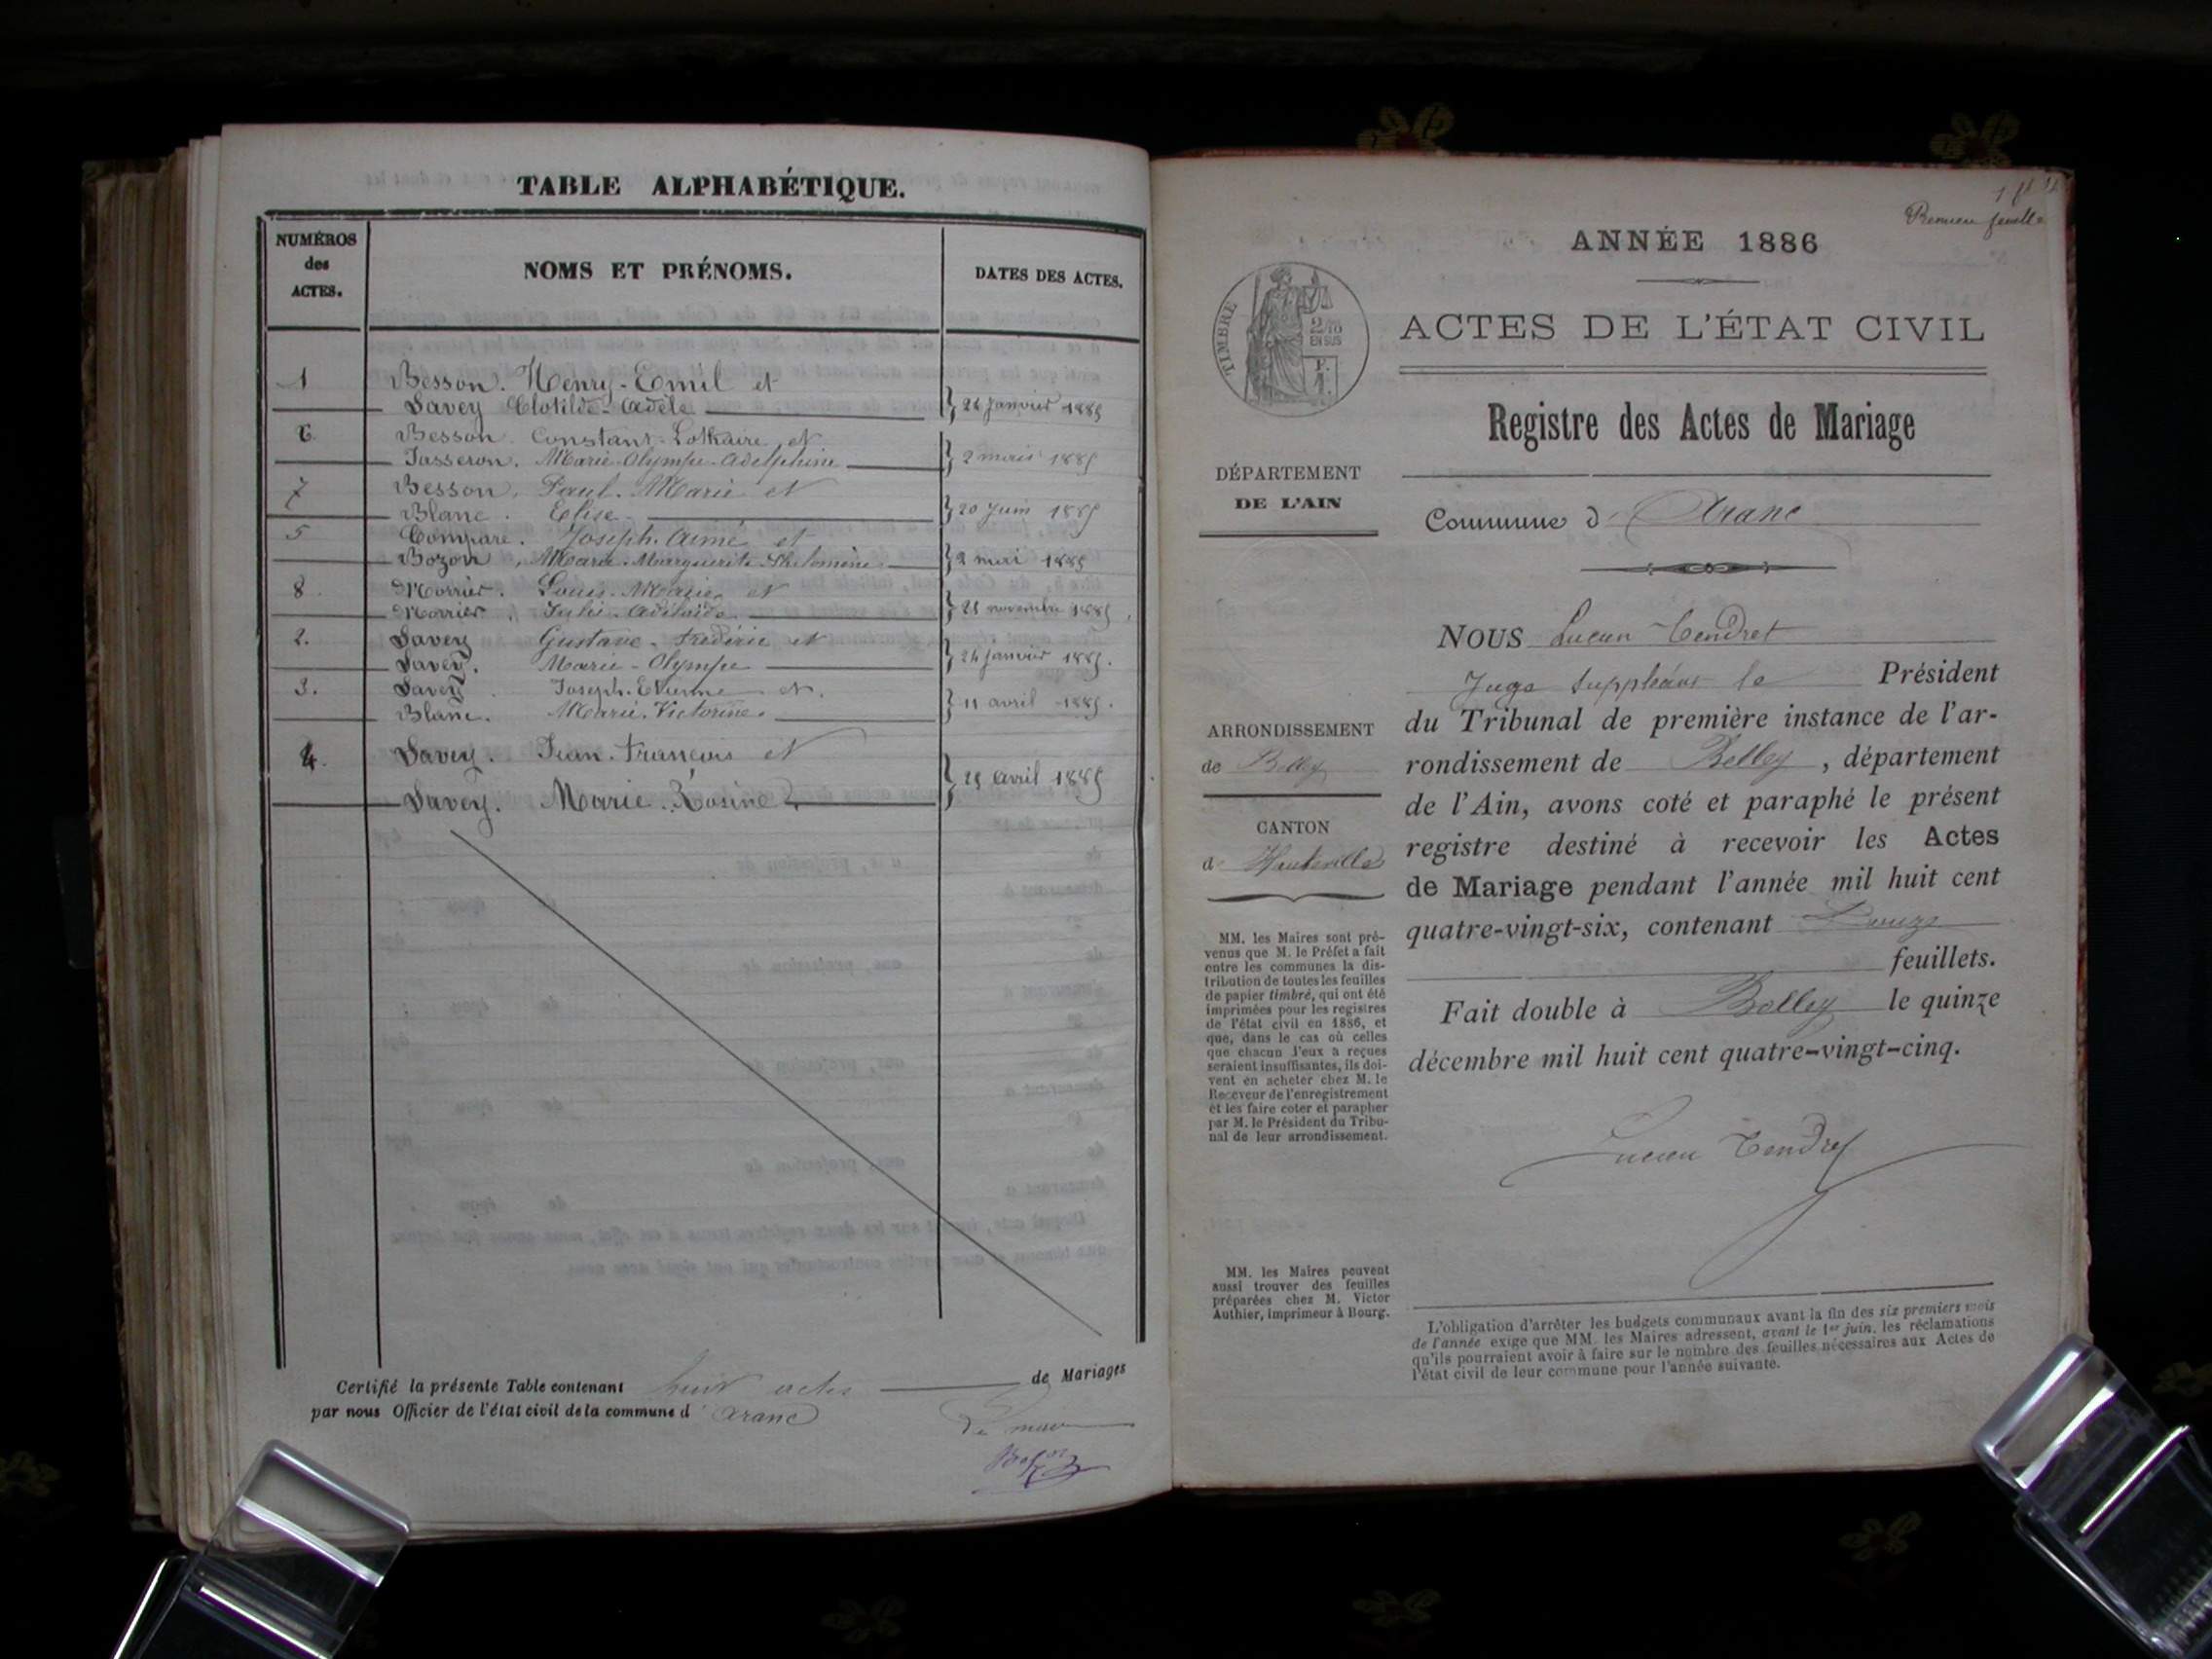 TABLE ALPHABÉTIQUE.
NUMÉROS
des
ACTES.
NOMS ET PRÉNOMS.
DATES DES ACTES.
1 Besson. Henry-Emil et
Savey Clotilde-Adèle } 24 janvier 1885
6 Besson. Constant-Lothaire et
Jasseron. Marie-Olympe-Adelphine } 2 mai 1885
7 Besson. Paul. Marie et
Blanc. Elise } 20 Juin 1885
5 Compare. Joseph. Aimé et
Bozon. Marie. Marguerite Philomène } 2 mai 1885
8 Morrier. Louis. Marie et
Morrier. Julie. Adélaïde } 21 novembre 1885
2. Savey Gustave-Frédéric et
Savey. Marie-Olympe } 24 janvier 1885.
3. Savey. Joseph. Etienne et.
Blanc. Marie. Victorine. } 11 avril 1885.
4. Savey. Jean. François et
Savey. Marie. Rosine } 25 avril 1885
Certifié la présente Table contenant huit actes de Mariages
par nous Officier de l'état civil de la commune d' Aranc
Le maire
Bozon
feuille
ANNÉE 1886
ACTES DE L'ÉTAT CIVIL
TIMBRE
2/10
EN SUS
Registre des Actes de Mariage
DÉPARTEMENT
DE L'AIN
Commune d' Aranc
NOUS Lucien Tendret
Juge Suppléant le Président
du Tribunal de première instance de l'ar-
rondissement de Belley, département
de l'Ain, avons coté et paraphé le présent
registre destiné à recevoir les Actes
de Mariage pendant l'année mil huit cent
quatre-vingt-six, contenant Douze
feuillets.
Fait double à Belley le quinze
décembre mil huit cent quatre-vingt-cinq.
Lucien Tendret
ARRONDISSEMENT
de Belley
CANTON
d' Hauteville
MM. les Maires sont pré-
venus que M. le Préfet a fait
entre les communes la dis-
tribution de toutes les feuilles
de papier timbré, qui ont été
imprimées pour les registres
de l'état civil en 1886, et
que, dans le cas où celles
que chacun d'eux a reçues
seraient insuffisantes, ils doi-
vent en acheter chez M. le
Receveur de l'enregistrement
et les faire coter et parapher
par M. le Président du Tribu-
nal de leur arrondissement.
MM. les Maires peuvent
aussi trouver des feuilles
préparées chez M. Victor
Authier, imprimeur à Bourg.
L'obligation d'arrêter les budgets communaux avant la fin des six premiers mois
de l'année exige que MM. les Maires adressent, avant le 1er juin, les réclamations
qu'ils pourraient avoir à faire sur le nombre des feuilles nécessaires aux Actes de
l'état civil de leur commune pour l'année suivante.